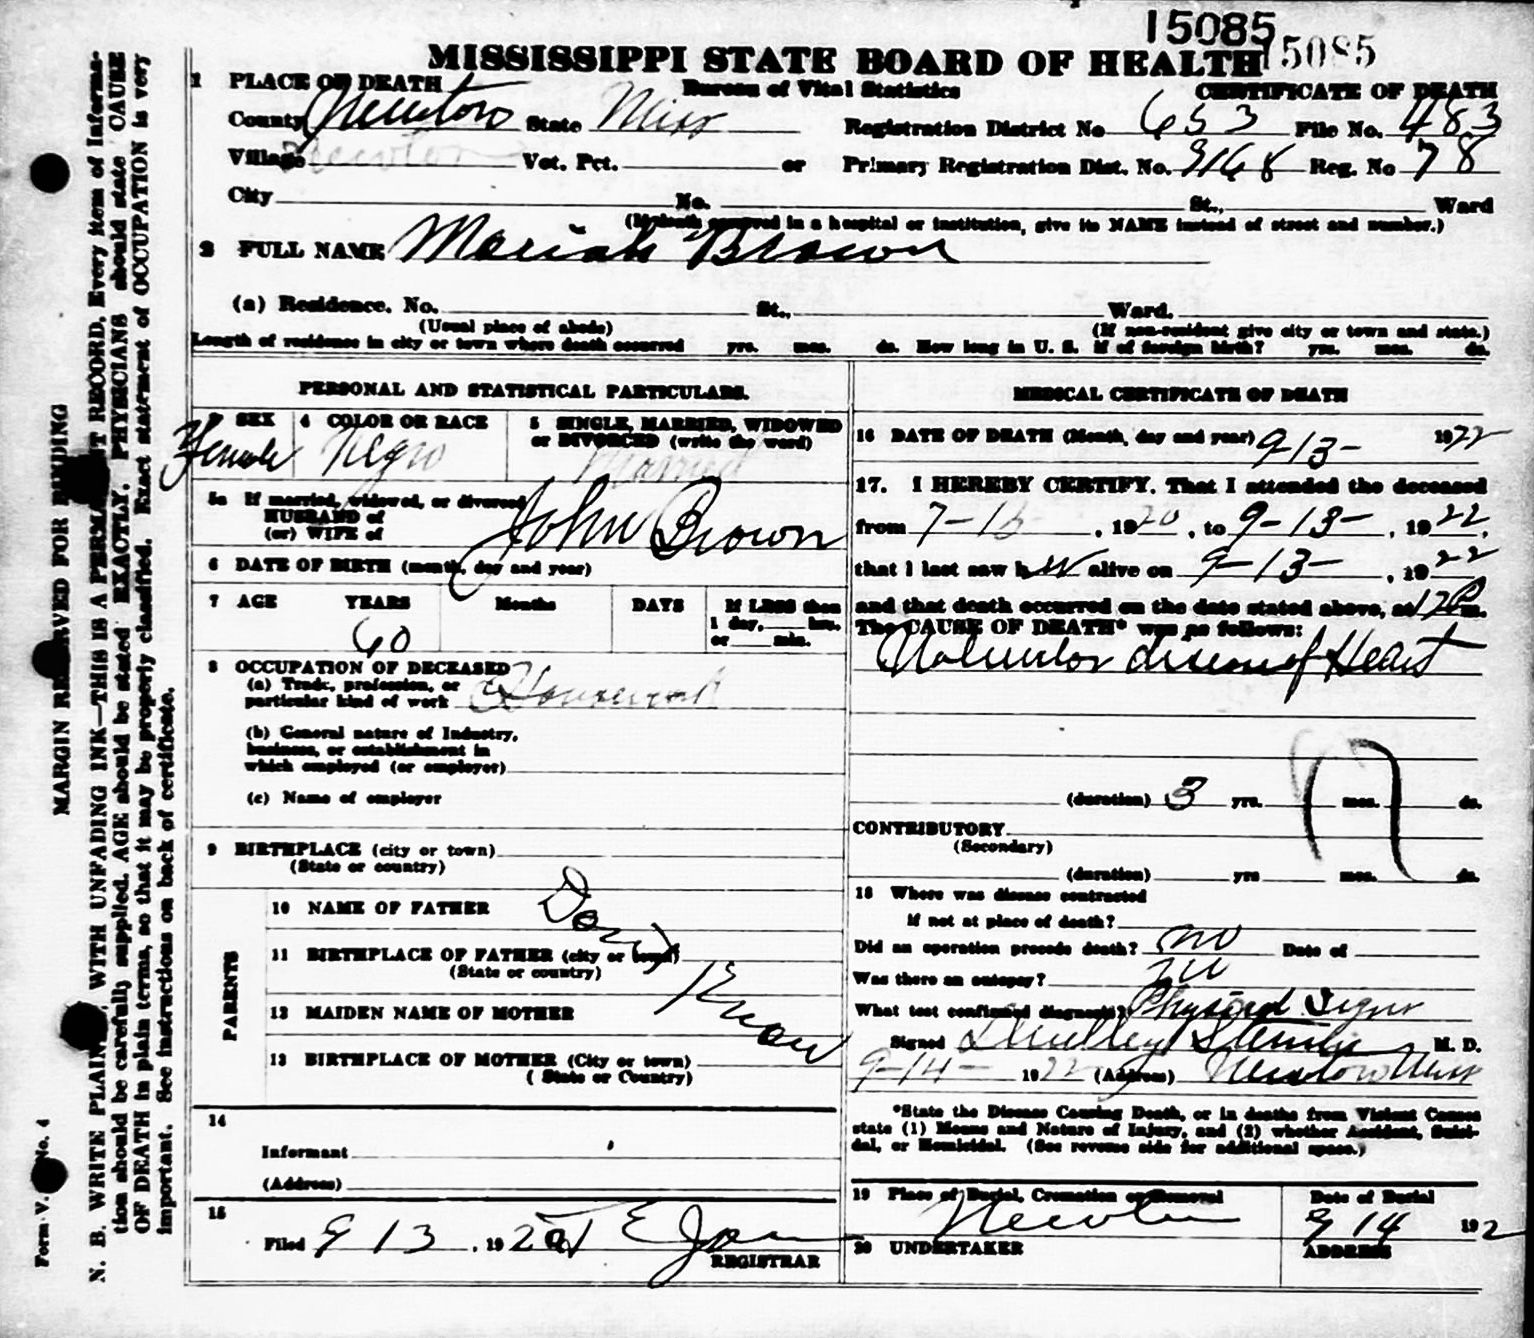 15085
15085
MISSISSIPPI STATE BOARD OF HEALTH
1 PLACE OF DEATH
Bureau of Vital Statistics
CERTIFICATE OF DEATH
County Newton State Miss Registration District No 653 File No. 483
Village Newton Vot. Pct. or Primary Registration Dist. No. 3168 Reg. No 78
City No. St., Ward
(If death occurred in a hospital or institution, give its NAME instead of street and number.)
2 FULL NAME Mariah Brown
(a) Residence. No. St., Ward.
(Usual place of abode) (If non-resident give city or town and state.)
Length of residence in city or town where death occurred yrs. mos. ds. How long in U. S. if of foreign birth? yrs. mos. ds.
PERSONAL AND STATISTICAL PARTICULARS.
SEX 4 COLOR OR RACE 5 SINGLE, MARRIED, WIDOWED
or DIVORCED (write the word)
Female Negro Married
5a If married, widowed, or divorced
HUSBAND of
(or) WIFE of
John Brown
6 DATE OF BIRTH (month, day and year)
7 AGE YEARS Months DAYS If LESS than
1 day, hrs.
or min.
60
8 OCCUPATION OF DECEASED
(a) Trade, profession, or
particular kind of work Housework
(b) General nature of Industry,
business, or establishment in
which employed (or employer)
(c) Name of employer
9 BIRTHPLACE (city or town)
(State or country)
PARENTS
10 NAME OF FATHER
11 BIRTHPLACE OF FATHER (city or town)
(State or country)
12 MAIDEN NAME OF MOTHER
13 BIRTHPLACE OF MOTHER (City or town)
( State or Country)
Dont Know
14
Informant
(Address)
15
Filed 9 13, 192
REGISTRAR
MEDICAL CERTIFICATE OF DEATH
16 DATE OF DEATH (Month, day and year) 9-13- 1922
17. I HEREBY CERTIFY. That I attended the deceased
from 7- , 1920, to 9-13-, 1922,
that I last saw her alive on 9-13-, 1922
and that death occurred on the date stated above, at 12 P m.
The CAUSE OF DEATH* was as follows:
Valvular disease of Heart
(duration) 3 yrs. mos. ds.
CONTRIBUTORY
(Secondary)
(duration) yrs mos. ds.
18 Where was disease contracted
if not at place of death?
Did an operation precede death? no Date of
Was there an autopsy? no
What test confirmed diagnosis? Physical Signs
Signed Dudley M. D.
9-14- 1922 (Address) Newton Miss
*State the Disease Causing Death, or in deaths from Violent Causes
state (1) Means and Nature of Injury, and (2) whether Accident, Suici-
dal, or Homicidal. (See reverse side for additional space.)
19 Place of Burial, Cremation or Removal Date of Burial
Newton 9 14 1922
20 UNDERTAKER ADDRESS
MARGIN RESERVED FOR BINDING
N. B. WRITE PLAINLY, WITH UNFADING INK—THIS IS A PERMANENT RECORD. Every item of informa-
tion should be carefully supplied. AGE should be stated EXACTLY. PHYSICIANS should state CAUSE
OF DEATH in plain terms, so that it may be properly classified. Exact statement of OCCUPATION is very
important. See instructions on back of certificate.
Form V. No. 4